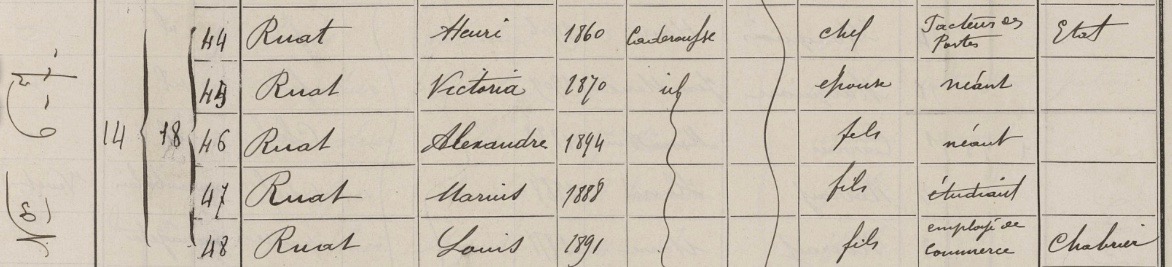 44 Ruat Henri 1860 Caderousse chef Facteur des Postes Etat
45 Ruat Victoria 1870 id epouse néant
14 18 46 Ruat Alexandre 1894 fils néant
47 Ruat Marius 1888 fils étudiant
48 Ruat Louis 1891 fils employé de Commerce Chabrier